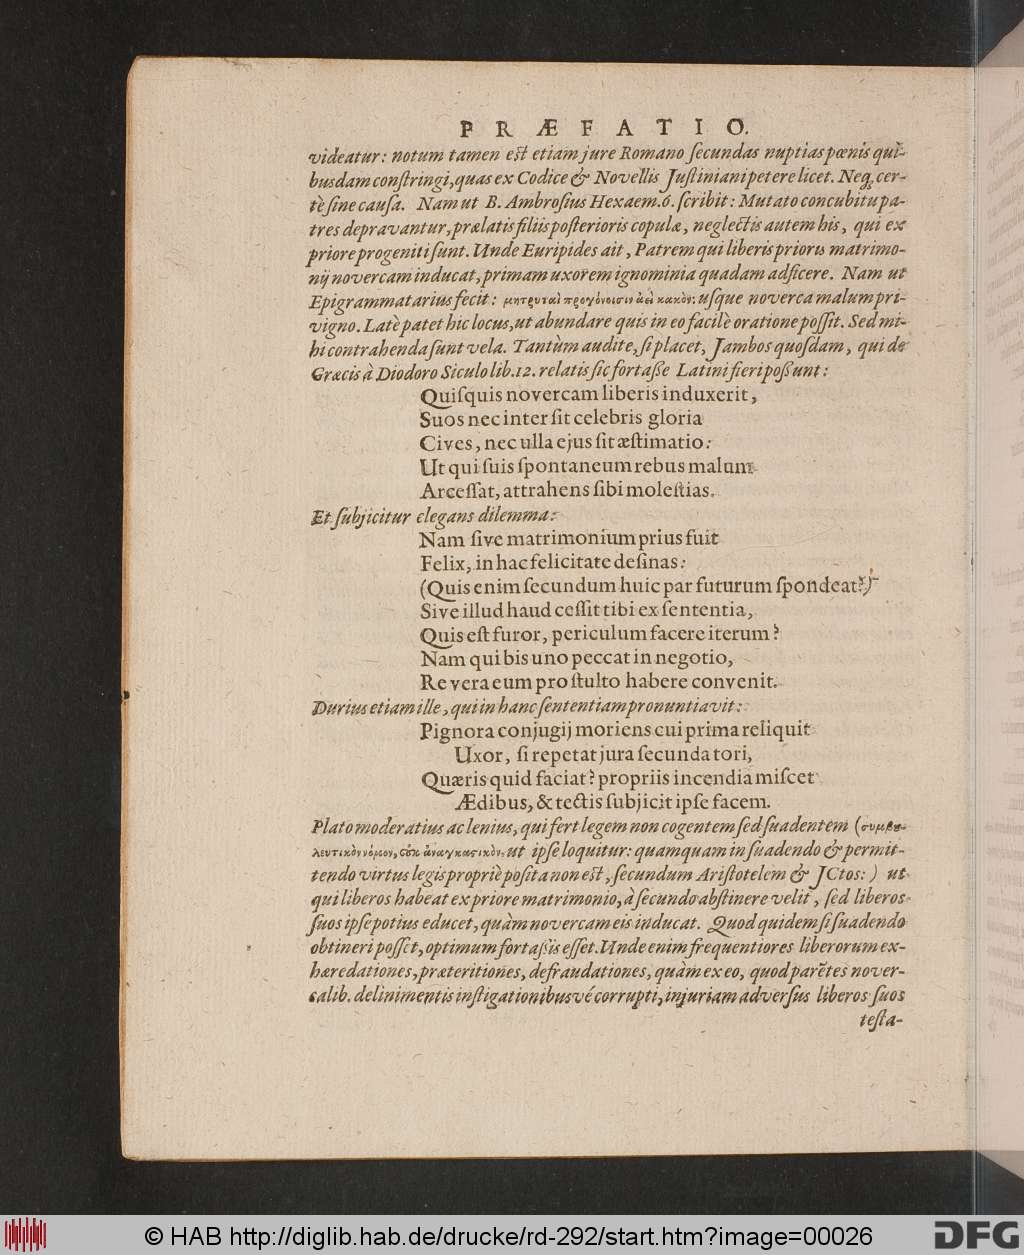 PRÆFATIO.
videatur: notum tamen est etiam jure Romano ſecundas nuptias pœnis qui-
busdam conſtringi, quas ex Codice & Novellis Juſtiniani petere licet. Neq; cer-
tè ſine cauſa. Nam ut B. Ambroſius Hexaem. 6. ſcribit: Mutato concubitu pa-
tres depravantur, prælatis filiis poſterioris copulæ, neglectis autem his, qui ex
priore progeniti ſunt. Unde Euripides ait, Patrem qui liberis prioris matrimo-
nij novercam inducat, primam uxorem ignominia quadam adficere. Nam ut
Epigrammatarius fecit: μητρυιαὶ προγόνοισιν ἀεὶ κακὸν: uſque noverca malum pri-
vigno. Latè patet hic locus, ut abundare quis in eo facilè oratione poſſit. Sed mi-
hi contrahenda ſunt vela. Tantùm audite, ſi placet, Jambos quoſdam, qui de
Græcis à Diodoro Siculo lib. 12. relatis ſic fortaße Latini fieri poßunt:
Quiſquis novercam liberis induxerit,
Suos nec inter ſit celebris gloria
Cives, nec ulla ejus ſit æſtimatio:
Ut qui ſuis ſpontaneum rebus malum
Arceſſat, attrahens ſibi moleſtias.
Et ſubjicitur elegans dilemma:
Nam ſive matrimonium prius fuit
Felix, in hac felicitate deſinas:
(Quis enim ſecundum huic par futurum ſpondeat?)
Sive illud haud ceſſit tibi ex ſententia,
Quis eſt furor, periculum facere iterum?
Nam qui bis uno peccat in negotio,
Re vera eum pro ſtulto habere convenit.
Durius etiam ille, qui in hanc ſententiam pronuntiavit:
Pignora conjugij moriens cui prima reliquit
Uxor, ſi repetat jura ſecunda tori,
Quæris quid faciat? propriis incendia miſcet
Ædibus, & tectis ſubjicit ipſe facem.
Plato moderatius ac lenius, qui fert legem non cogentem ſed ſuadentem (συμβου-
λευτικὸν νόμον, οὐκ ἀναγκαστικὸν, ut ipſe loquitur: quamquam in ſuadendo & permit-
tendo virtus legis propriè poſita non est, ſecundum Ariſtotelem & JCtos:) ut
qui liberos habeat ex priore matrimonio, à ſecundo abſtinere velit, ſed liberos
ſuos ipſe potius educet, quàm novercam eis inducat. Quod quidem ſi ſuadendo
obtineri poſſet, optimum fortaßis eſſet. Unde enim frequentiores liberorum ex-
hæredationes, præteritiones, defraudationes, quàm ex eo, quod parẽtes nover-
calib. delinimentis inſtigationibusvé corrupti, injuriam adverſus liberos ſuos
teſta-
© HAB http://diglib.hab.de/drucke/rd-292/start.htm?image=00026
DFG